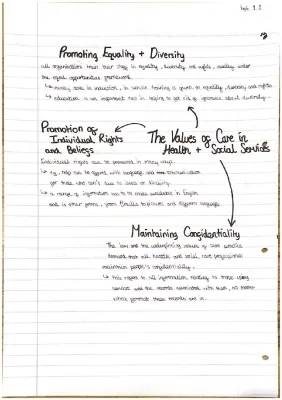 Promoting Equality + Diversity
all organisations train their staff in equality, diversity and rights, usually under
the equal opportunities framework.
↳ usually done in induction, in service training is given on equality, diversity and rights.
↳ education is an important tool in helping to get rid of ignorance about diversity.
Promotion of
Individual Rights
and Beliefs
The Values of Care in
Health + Social Services
Individual rights can be promoted in many ways.
↳ eg, help can be offered with language and communication
for those who can't due to
↳ a range of information has to be made available in English
and in other forms, from Braille to pictures and different languages.
Maintaining Confidentiality
The law and the underpinning values of care practice
demand that all health and social care professionals
maintain people's confidentiality.
↳ this applies to all information relating to those using
services and the records associated with them, no matter
which format these records are in.